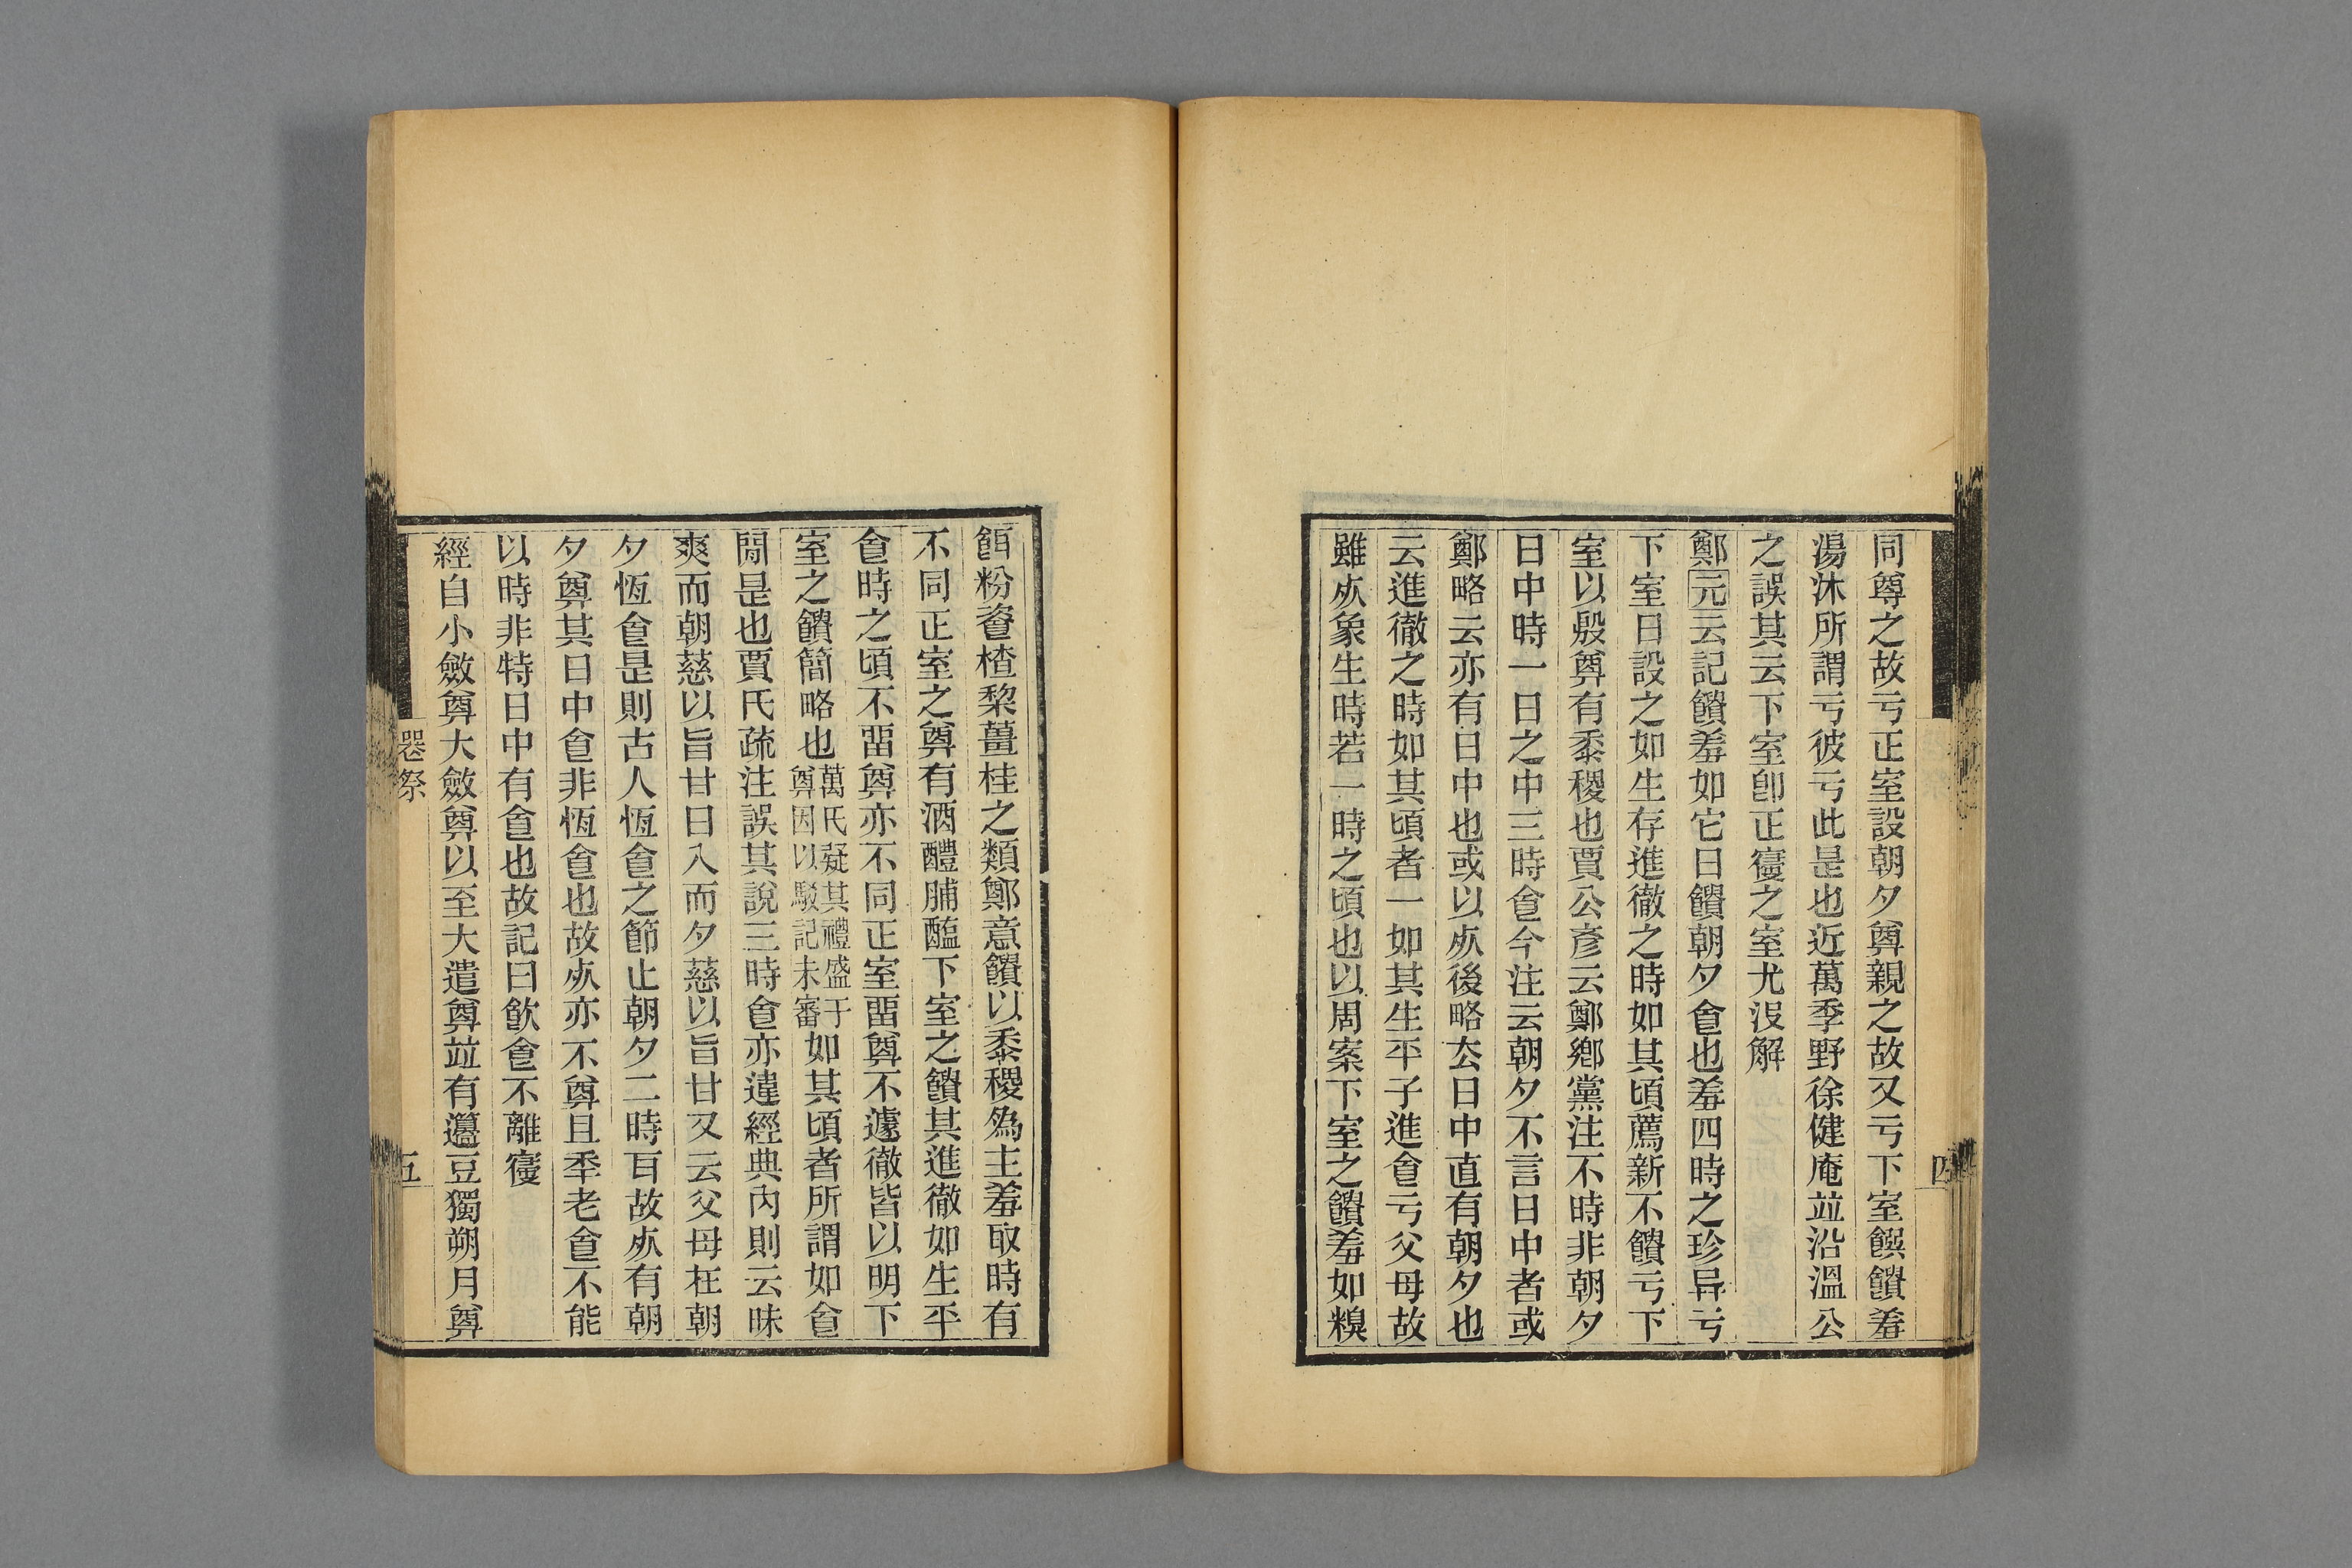 同奠之故亏正室設朝夕奠親之故又亏下室饌饋羞
湯沐所謂亏彼亏此是也近萬季野徐健庵竝沿溫公
之誤其云下室卽正寑之室尤沒解
鄭元云記饋羞如它日饋朝夕食也羞四時之珍异亏
下室日設之如生存進徹之時如其頃薦新不饋亏下
室以殷奠有黍稷也賈公彥云鄭鄉黨注不時非朝夕
日中時一日之中三時食今注云朝夕不言日中者或
鄭略云亦有日中也或以𣦸後略去日中直有朝夕也
云進徹之時如其頃者一如其生平子進食亏父母故
雖𣦸象生時若一時之頃也以周案下室之饋羞如糗
餌粉餈楂棃薑桂之類鄭意饋以黍稷爲主羞取時有
不同正室之奠有酒醴脯醢下室之饋其進徹如生平
食時之頃不畱奠亦不同正室畱奠不遽徹皆以明下
室之饋簡略也萬氏疑其禮盛于奠因以駁記未審如其頃者所謂如食
閒是也賈氏疏注誤其說三時食亦違經典內則云昧
爽而朝慈以旨甘日入而夕慈以旨甘又云父母在朝
夕恆食是則古人恆食之節止朝夕二時耳故𣦸有朝
夕奠其日中食非恆食也故𣦸亦不奠且秊老食不能
以時非特日中有食也故記曰飮食不離寑
經自小斂奠大斂奠以至大遣奠竝有籩豆獨朔月奠